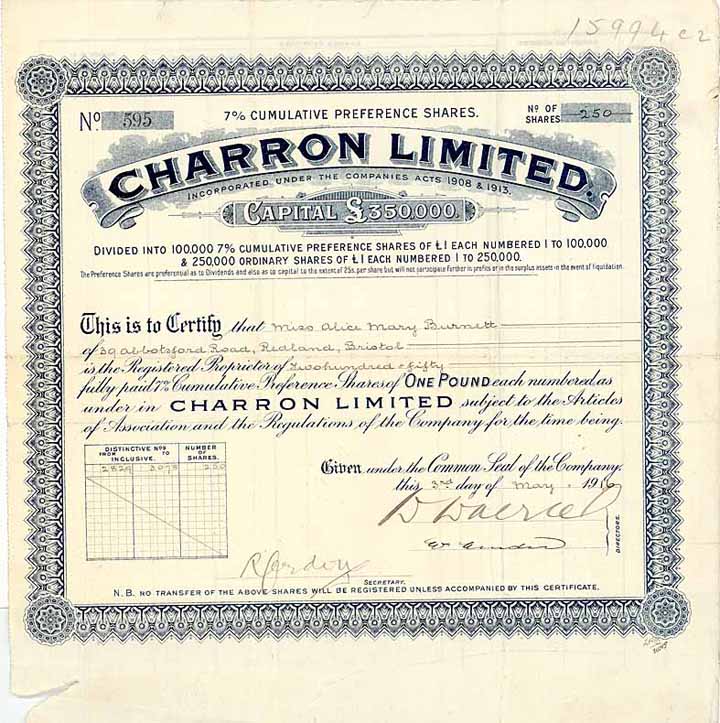 15994 c2
No. 595
7% CUMULATIVE PREFERENCE SHARES.
No OF SHARES 250
CHARRON LIMITED.
INCORPORATED UNDER THE COMPANIES ACTS 1908 & 1913.
CAPITAL £350,000.
DIVIDED INTO 100,000 7% CUMULATIVE PREFERENCE SHARES OF £1 EACH NUMBERED 1 TO 100,000
& 250,000 ORDINARY SHARES OF £1 EACH NUMBERED 1 TO 250,000.
The Preference Shares are preferential as to Dividends and also as to capital to the extent of 25s. per share but will not participate further in profits or in the surplus assets in the event of liquidation.
This is to Certify that Miss Alice Mary Burnett
of 39 Abbotsford Road, Redland, Bristol
is the Registered Proprietor of Two hundred & fifty
fully paid 7% Cumulative Preference Shares of ONE POUND each numbered as
under in CHARRON LIMITED subject to the Articles
of Association and the Regulations of the Company for the time being.
DISTINCTIVE Nos FROM TO INCLUSIVE. NUMBER OF SHARES.
2829 3078 250
Given under the Common Seal of the Company,
this 3rd day of May 1916
DIRECTORS.
SECRETARY.
N.B. NO TRANSFER OF THE ABOVE SHARES WILL BE REGISTERED UNLESS ACCOMPANIED BY THIS CERTIFICATE.